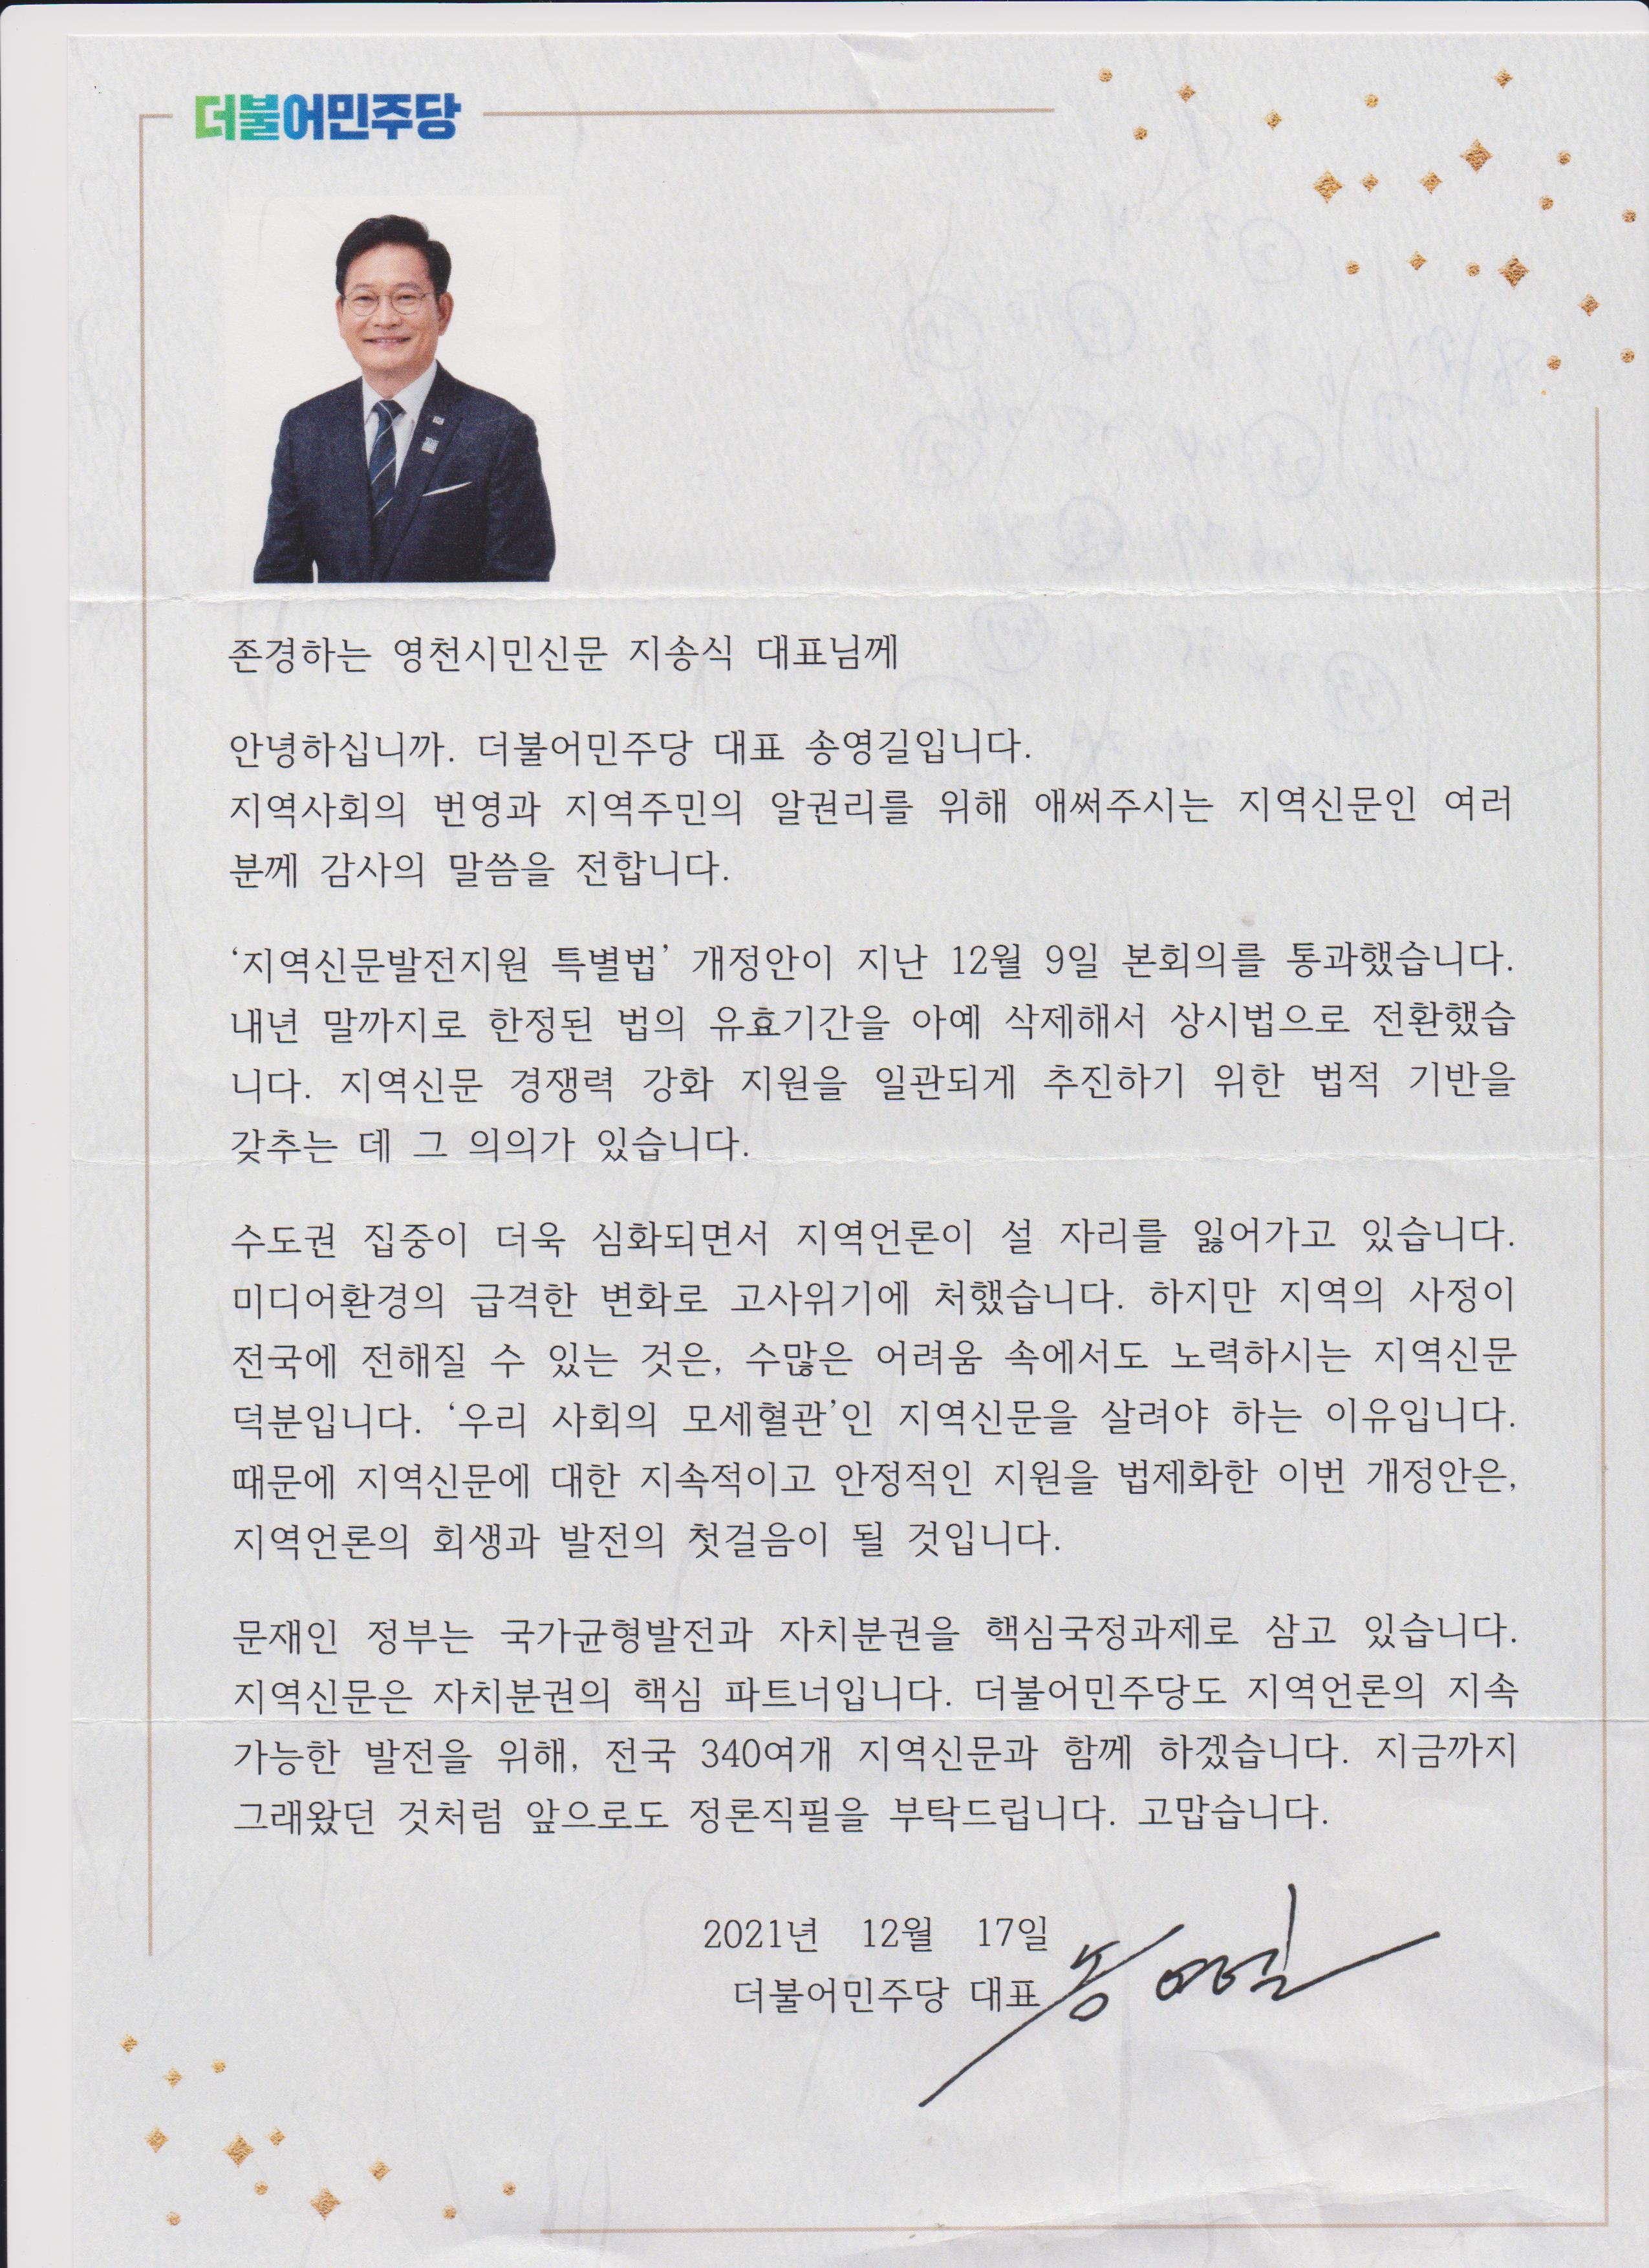 더불어민주당
존경하는 영천시민신문 지송식 대표님께
안녕하십니까. 더불어민주당 대표 송영길입니다.
지역사회의 번영과 지역주민의 알권리를 위해 애써주시는 지역신문인 여러
분께 감사의 말씀을 전합니다.
‘지역신문발전지원 특별법’ 개정안이 지난 12월 9일 본회의를 통과했습니다.
내년 말까지로 한정된 법의 유효기간을 아예 삭제해서 상시법으로 전환했습
니다. 지역신문 경쟁력 강화 지원을 일관되게 추진하기 위한 법적 기반을
갖추는 데 그 의의가 있습니다.
수도권 집중이 더욱 심화되면서 지역언론이 설 자리를 잃어가고 있습니다.
미디어환경의 급격한 변화로 고사위기에 처했습니다. 하지만 지역의 사정이
전국에 전해질 수 있는 것은, 수많은 어려움 속에서도 노력하시는 지역신문
덕분입니다. ‘우리 사회의 모세혈관’인 지역신문을 살려야 하는 이유입니다.
때문에 지역신문에 대한 지속적이고 안정적인 지원을 법제화한 이번 개정안은,
지역언론의 회생과 발전의 첫걸음이 될 것입니다.
문재인 정부는 국가균형발전과 자치분권을 핵심국정과제로 삼고 있습니다.
지역신문은 자치분권의 핵심 파트너입니다. 더불어민주당도 지역언론의 지속
가능한 발전을 위해, 전국 340여개 지역신문과 함께 하겠습니다. 지금까지
그래왔던 것처럼 앞으로도 정론직필을 부탁드립니다. 고맙습니다.
2021년 12월 17일
더불어민주당 대표 송영길